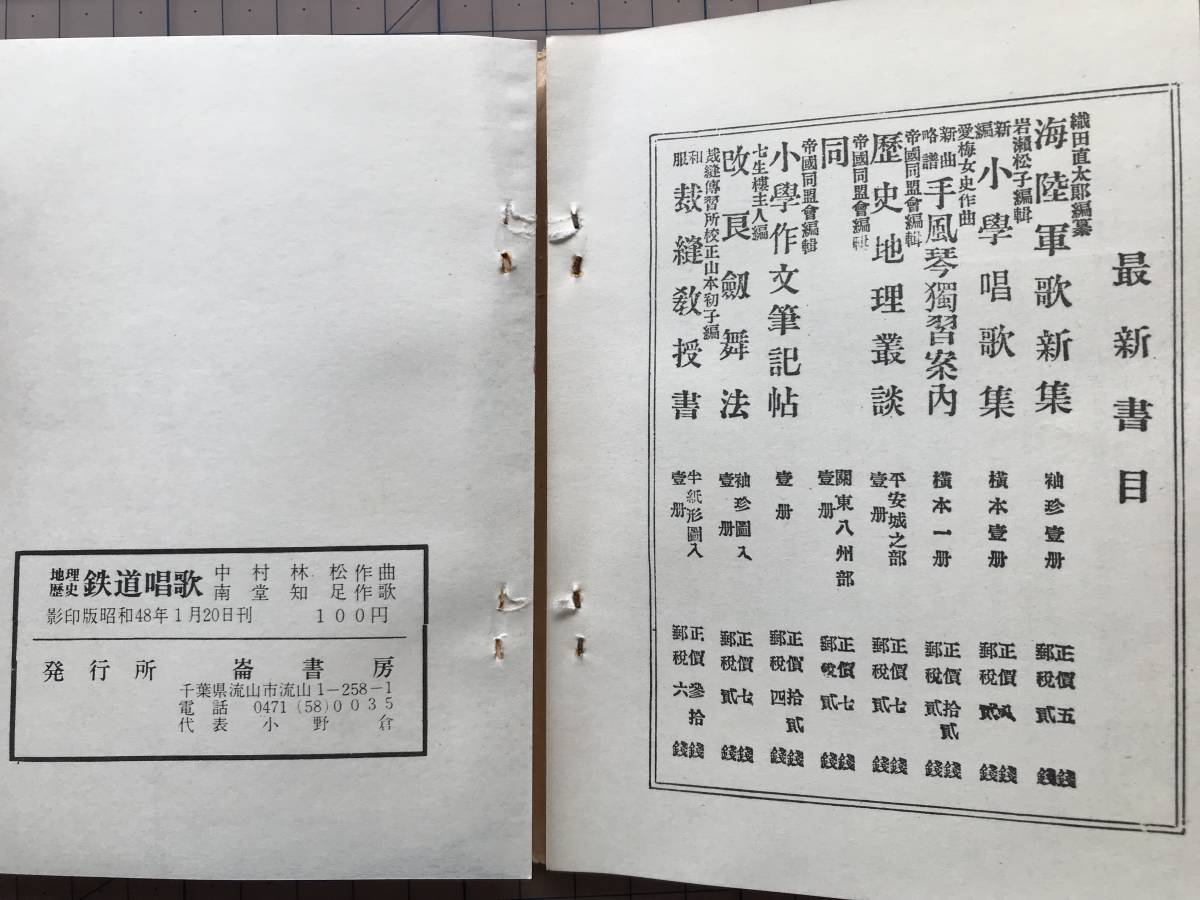 最新書目
織田直太郎編纂
海陸軍歌新集 袖珍壹册 正價五錢 郵税貳錢
岩瀬松子編輯
新編 小學唱歌集 横本壹册 正價八錢 郵税貳錢
愛梅女史作曲
新曲略譜 手風琴獨習案内 横本一册 正價拾貳錢 郵税貳錢
帝國同盟會編輯
歷史地理叢談 平安城之部壹册 正價七錢 郵税貳錢
帝國同盟會編輯
同 關東八州部壹册 正價七錢 郵税貳錢
帝國同盟會編輯
小學作文筆記帖 壹册 正價拾貳錢 郵税四錢
七生樓主人編
改良劔舞法 袖珍圖入壹册 正價七錢 郵税貳錢
裁縫傳習所校正山本初子編
和服 裁縫敎授書 半紙形圖入壹册 正價參拾錢 郵税六錢
地理歴史 鉄道唱歌 中村林松作曲
南堂知足作歌
影印版昭和48年1月20日刊 100円
発行所 崙書房
千葉県流山市流山1-258-1
電話 0471(58)0035
代表 小野倉